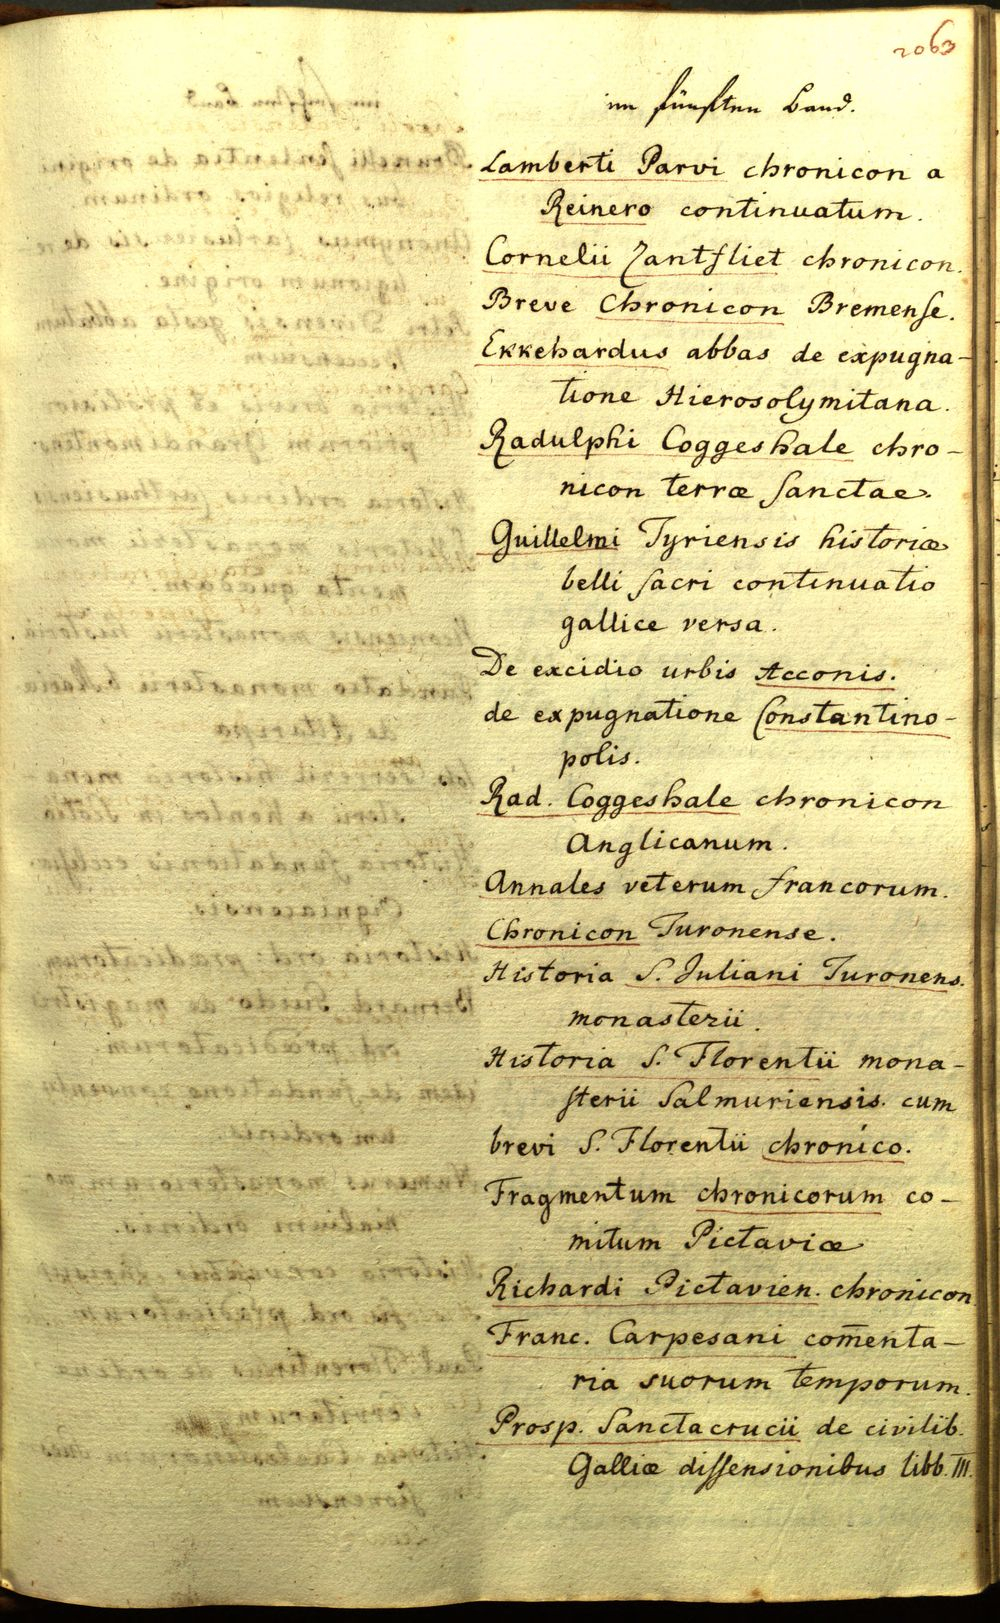 2063
im fünften Band.
Lamberti Parvi chronicon a
Reinero continuatum.
Cornelii Zantfliet chronicon.
Breve Chronicon Bremense.
Ekkehardus abbas de expugna-
tione Hierosolymitana.
Radulphi Coggeshale chro-
nicon terræ sanctae.
Guillelmi Tyriensis historiæ
belli sacri continuatio
gallice versa.
De excidio urbis Acconis.
de expugnatione Constantino-
polis.
Rad. Coggeshale chronicon
Anglicanum.
Annales veterum francorum.
Chronicon Turonense.
Historia S. Juliani Turonens.
monasterii.
Historia S. Florentii mona-
sterii Salmuriensis. cum
brevi S. Florentii chronico.
Fragmentum chronicorum co-
mitum Pictaviæ
Richardi Pictavien. chronicon
Franc. Carpesani com̄enta-
ria suorum temporum.
Prosp. Sanctacrucii de civilib.
Galliæ dissensionibus libb. III.